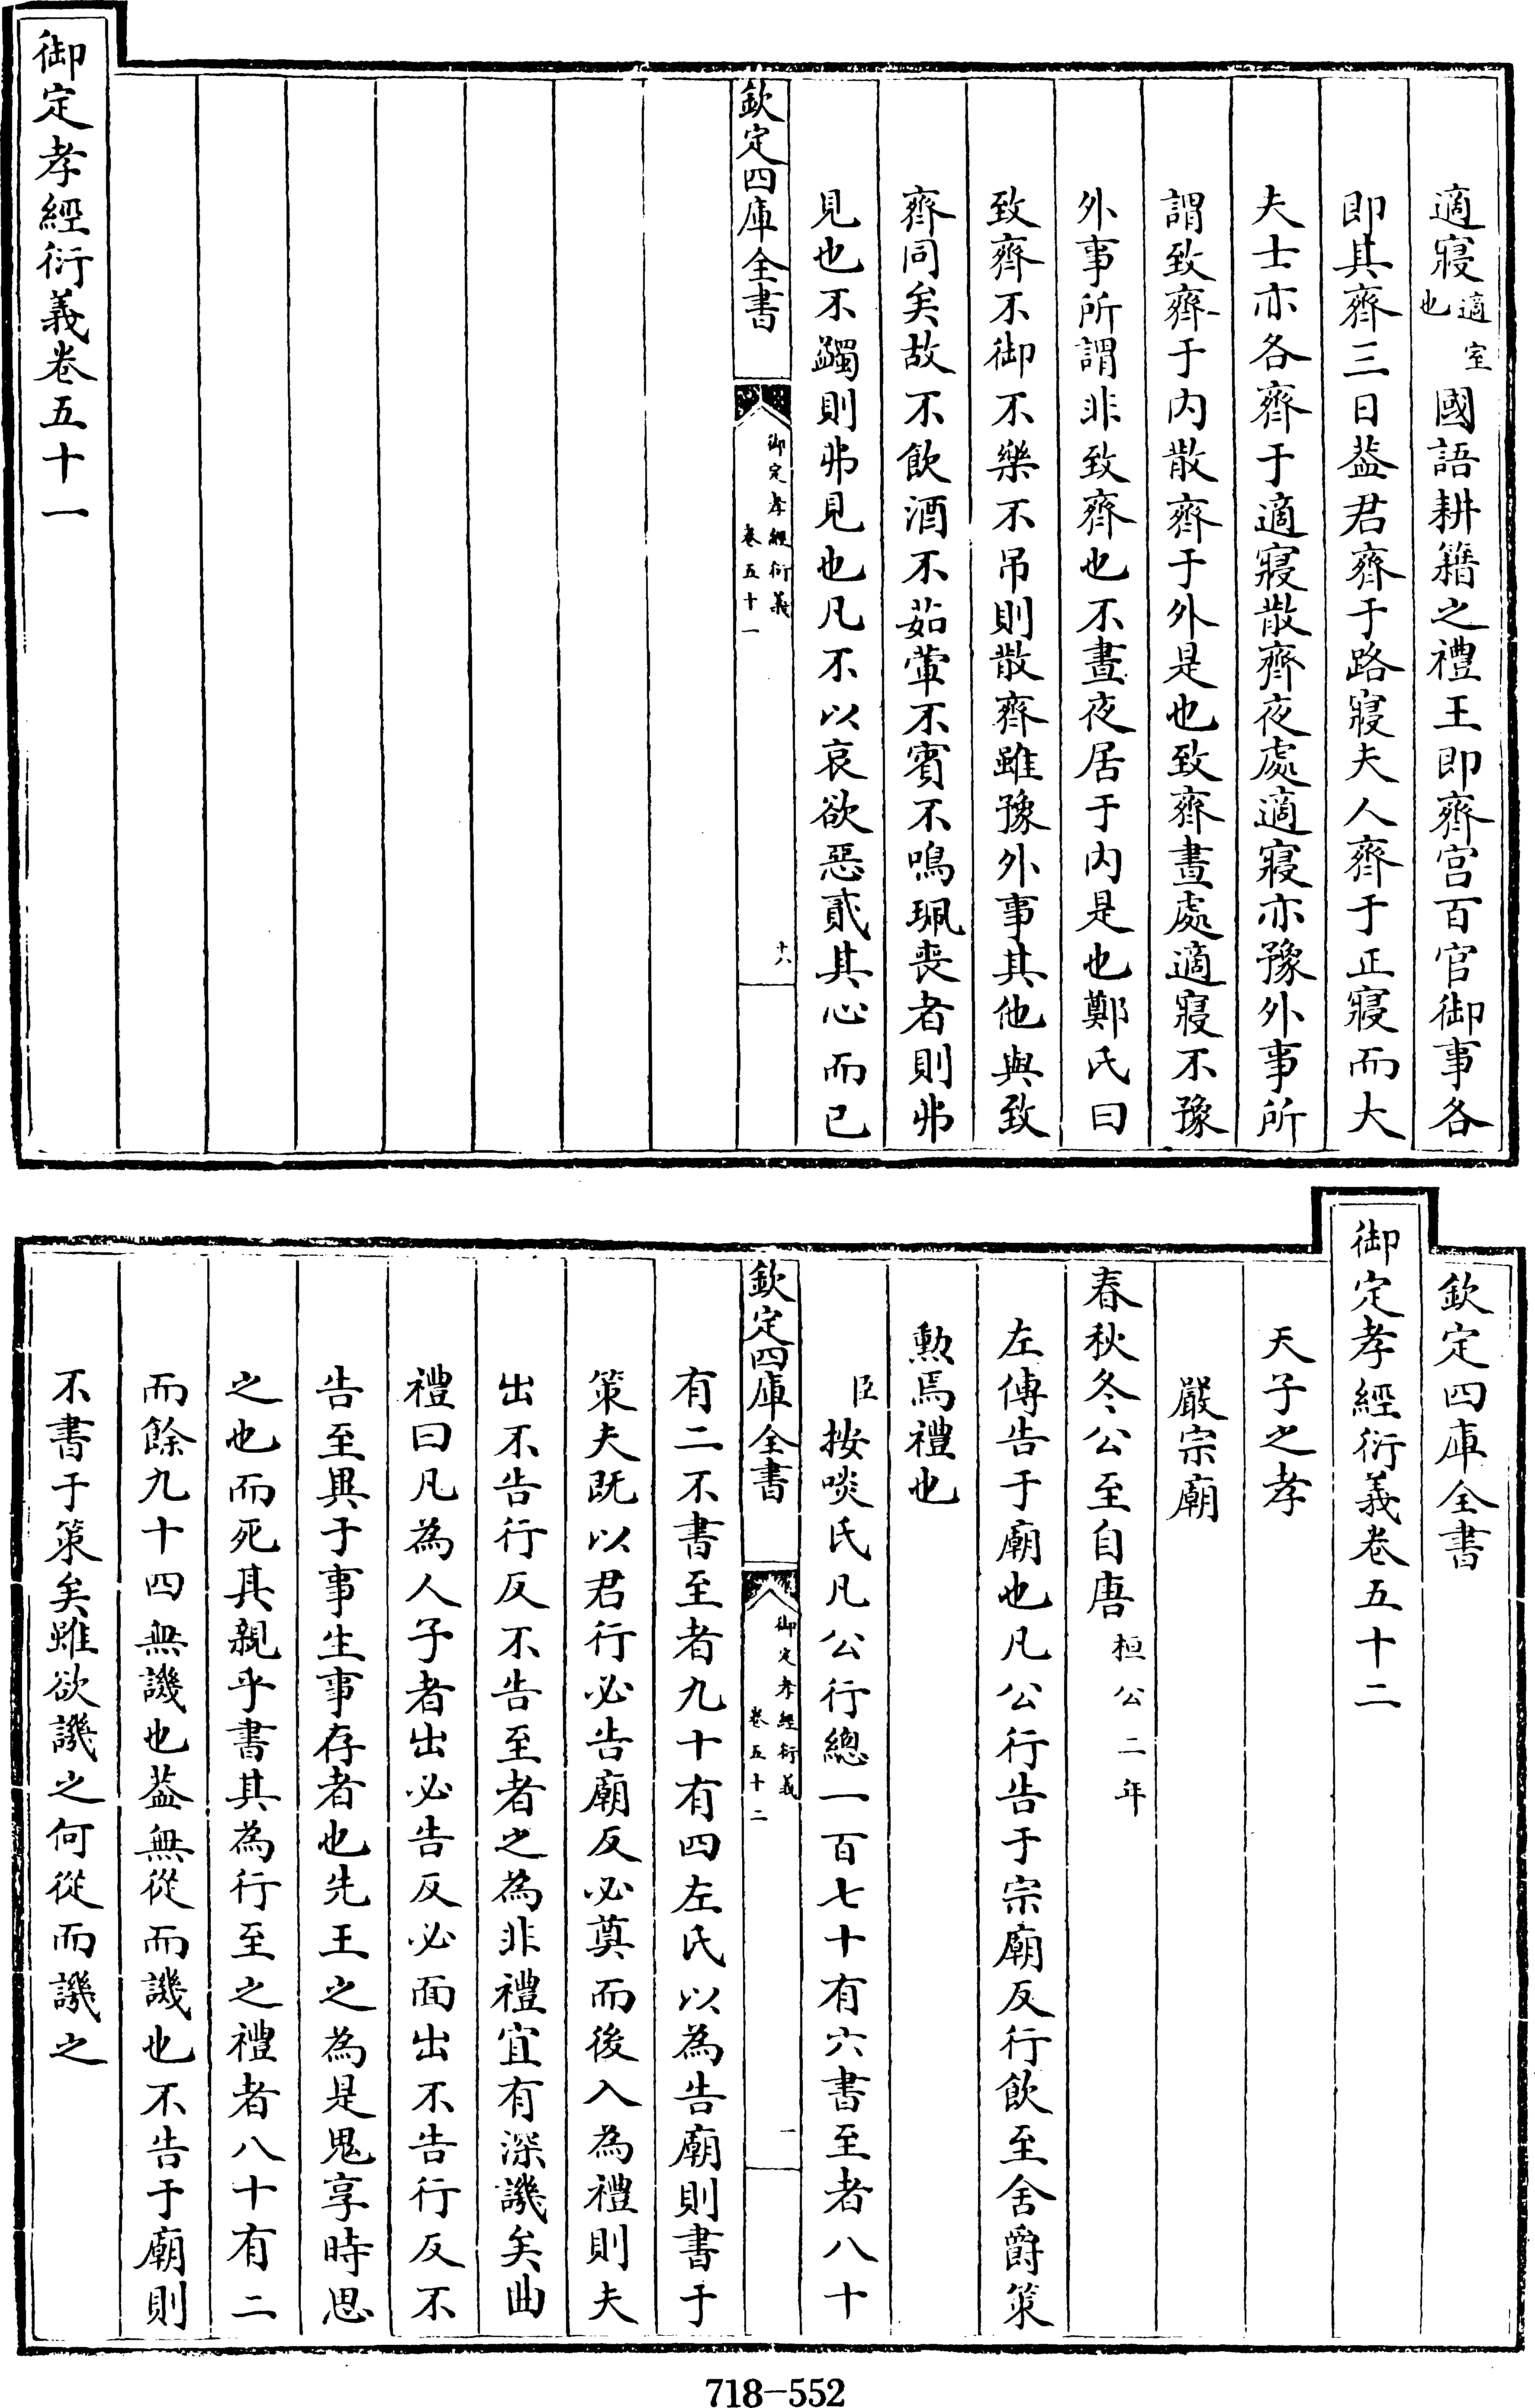 適寢適室也國語耕籍之禮王即齊宫百官御事各
即其齊三日葢君齊于路寢夫人齊于正寢而大
夫士亦各齊于適寢散齊夜處適寢亦豫外事所
謂致齊于内散齊于外是也致齊晝處適寢不豫
外事所謂非致齊也不晝夜居于内是也鄭氏曰
致齊不御不樂不吊則散齊雖豫外事其他與致
齊同矣故不飲酒不茹葷不賓不鳴珮喪者則弗
見也不蠲則弗見也凡不以哀欲惡貳其心而已
欽定四庫全書
御定孝經衍義
卷五十一
十八
御定孝經衍義卷五十一
欽定四庫全書
御定孝經衍義卷五十二
天子之孝
嚴宗廟
春秋冬公至自唐桓公二年
左傳告于廟也凡公行告于宗廟反行飲至舍爵策
勲焉禮也
臣按啖氏凡公行總一百七十有六書至者八十
欽定四庫全書
御定孝經衍義
卷五十二
一
有二不書至者九十有四左氏以為告廟則書于
策夫既以君行必告廟反必奠而後入為禮則夫
出不告行反不告至者之為非禮宜有深譏矣曲
禮曰凡為人子者出必告反必面出不告行反不
告至異于事生事存者也先王之為是鬼享時思
之也而死其親乎書其為行至之禮者八十有二
而餘九十四無譏也葢無從而譏也不告于廟則
不書于策矣雖欲譏之何從而譏之
718-552